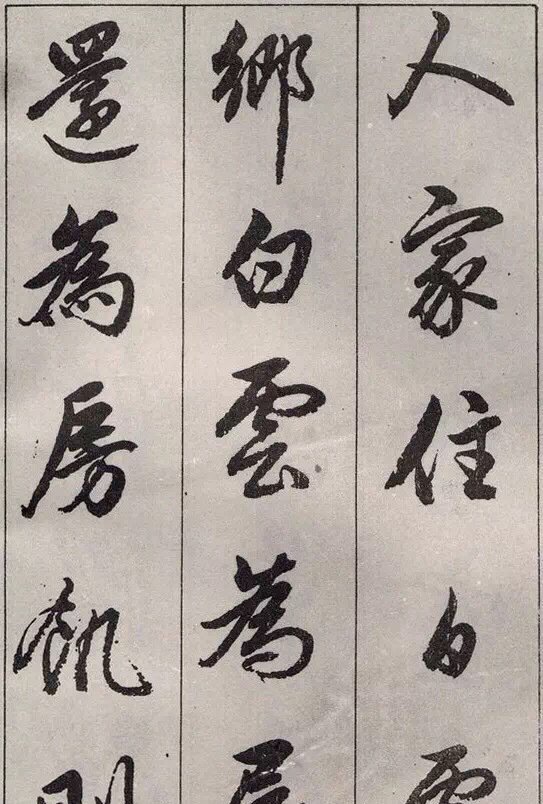 人家住白雲
鄉白雲為
還為房飢則